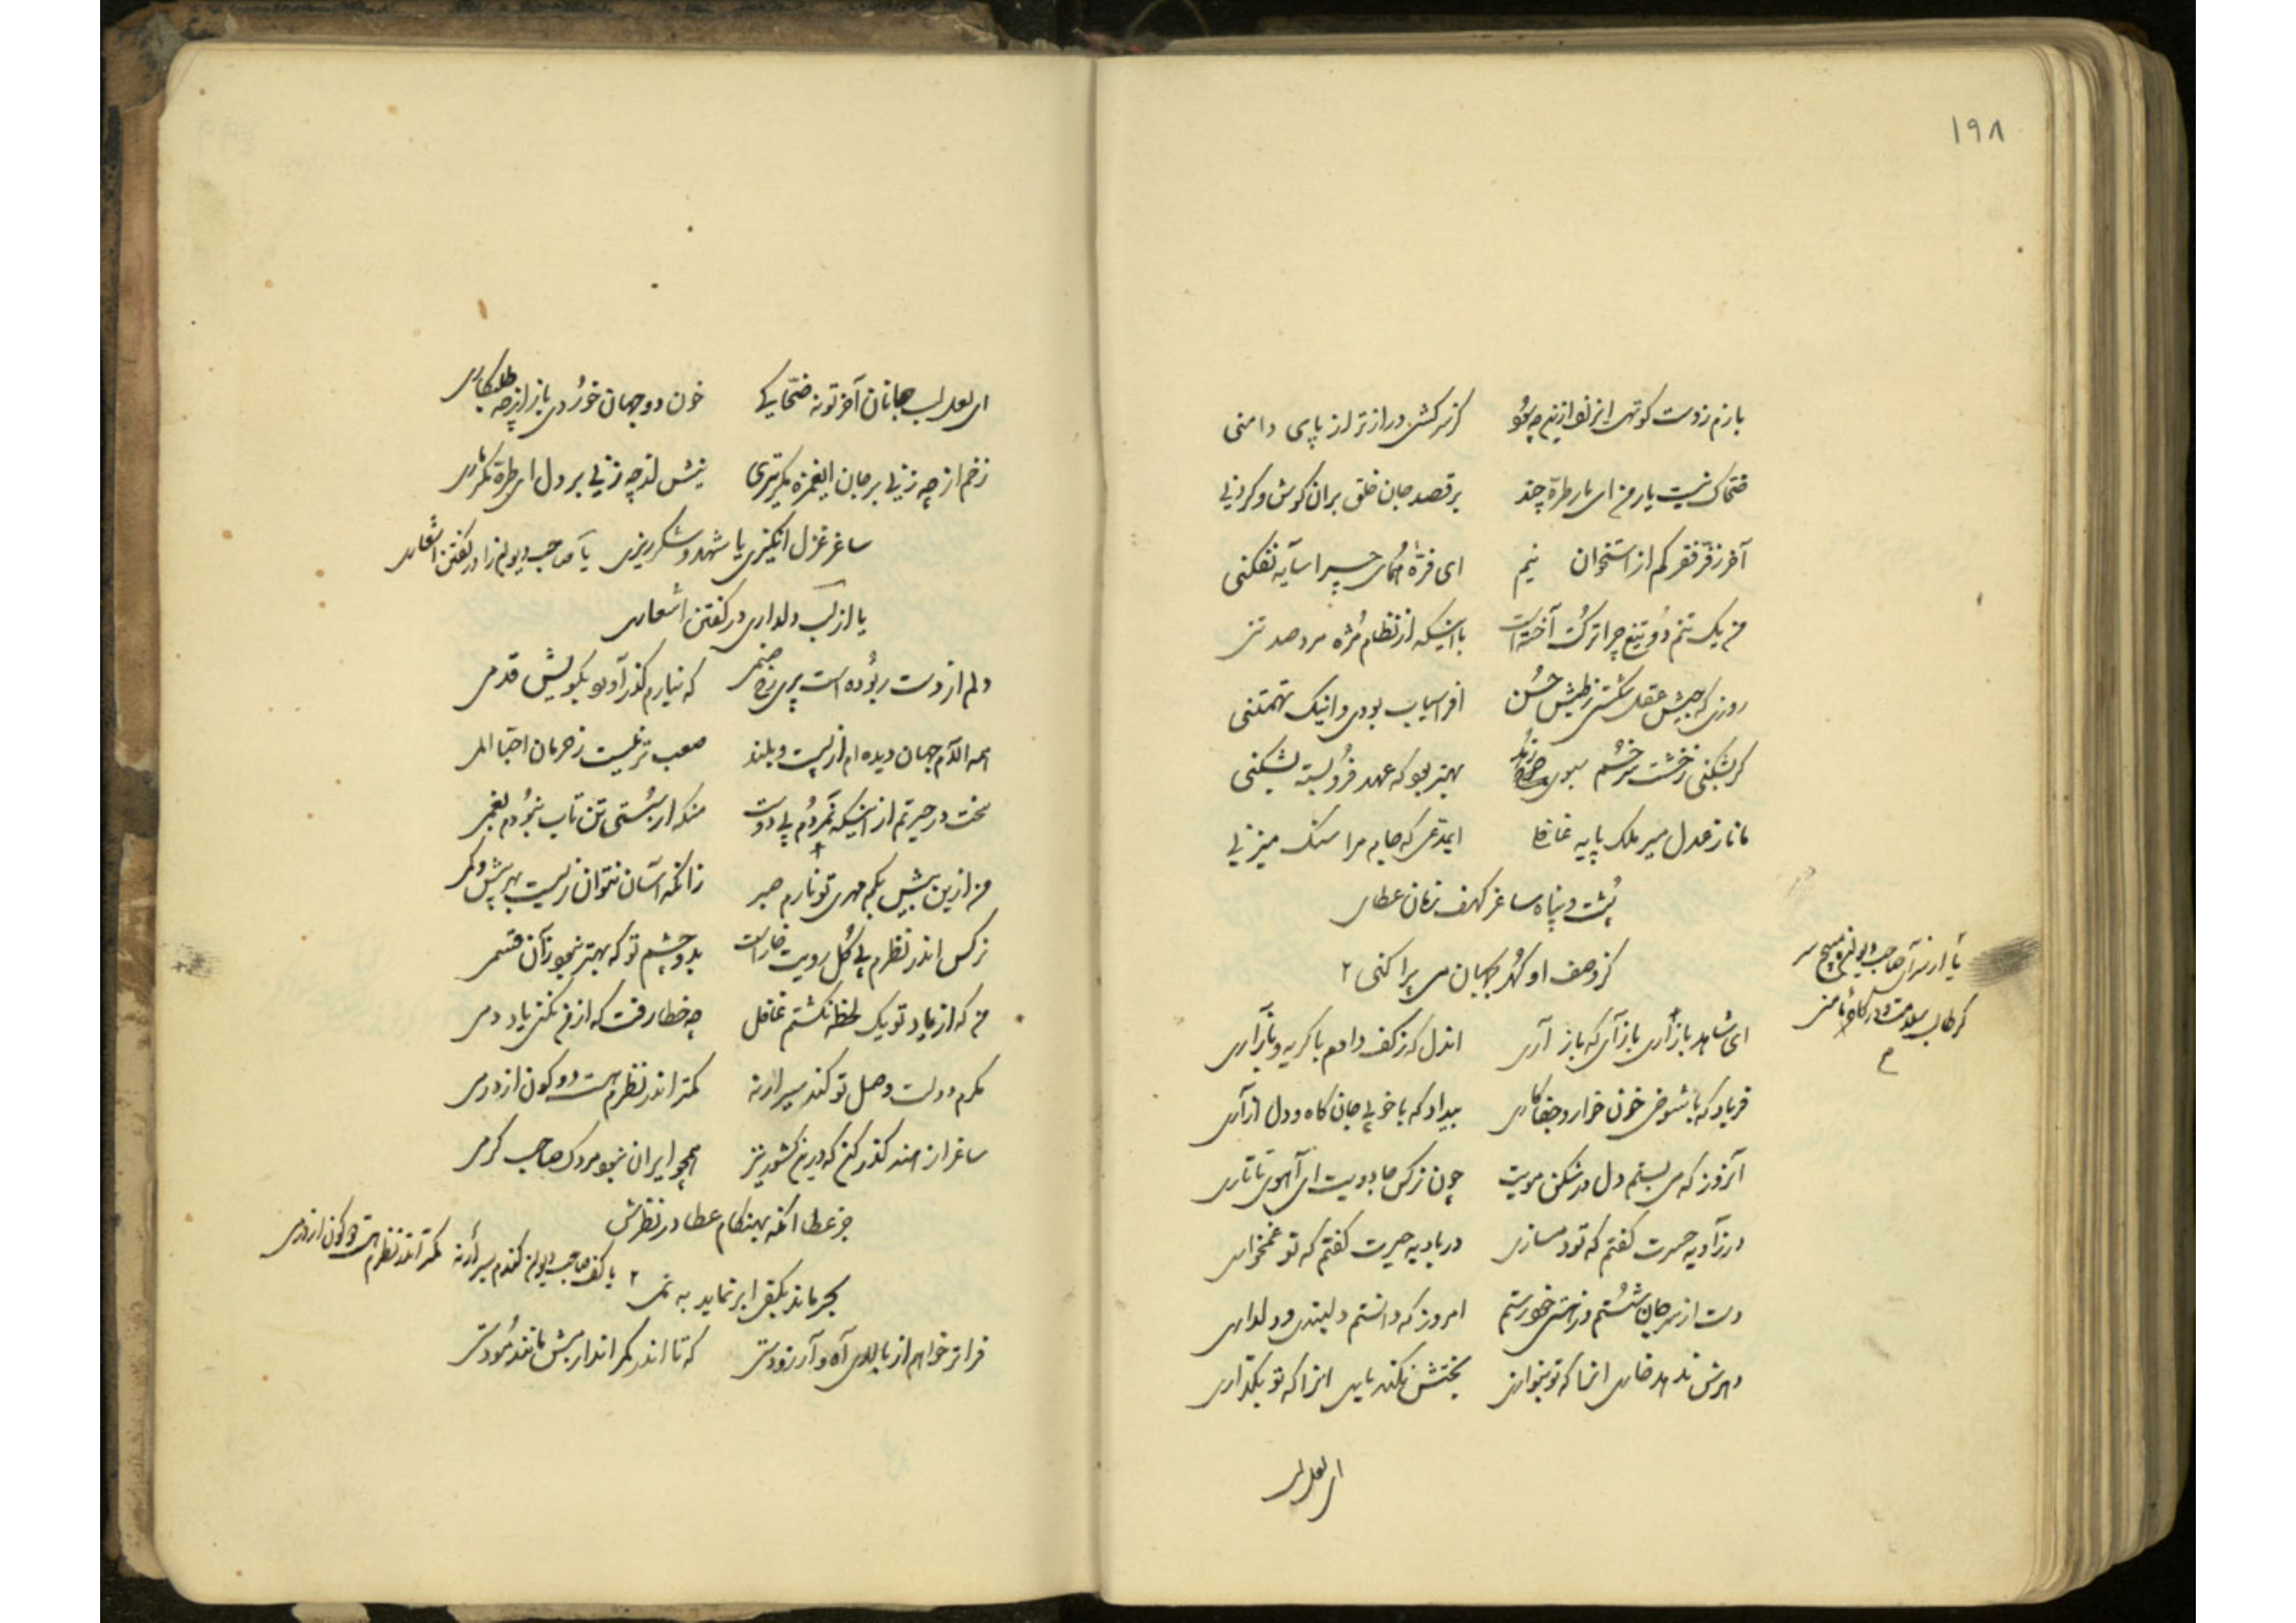 ۱۹۸
بازم ز دست کوتهی این زلف ازین چه سود کز سرکشی درازتر از پای دامنی
ضحاک نیست یار من ای مار طره چند بر قصد جان خلق بران گوش و گردنی
آخر ز فرّ فقر کم از استخوان نیم ای فرّه همای چرا سایه نفکنی
من یک تنم دو تیغ چرا ترکت آخته است با اینکه از نظام مژه مرد صد تنی
روزی که جیش عقل شکستی ز طیش حسن افراسیاب بودی و اینک تهمتنی
گر بشکنی ز خشت سر خم سبوی بهتر بود که عهد فرو بسته بشکنی
مانا ز عدل میر ملک پایه غافلی ای مدعی که جام مرا سنگ میزنی
پشت و پناه ساغر کهف زمان عطا
کز وصف او گهر می پراکنی ۲
یا از سر آن صاحب دیوان
گر طالب سلامت
م
ای شاهد بازاری بازآی که باز آری اندل که ز کف دادم با گریه و با زاری
فریاد که با شوخی خون خوار و جفاکاری بیداد که با خوئی جان کاه و دل آزاری
آنروز که می بستم دل در شکن مویت چون نرگس جادویت ای آهوی تاتاری
در زاویه حسرت گفتم که تو دمسازی در بادیه حیرت گفتم که تو غمخواری
دست از سر جان شستم امروز که دانستم دلبندی و دلداری
دهرش ندهد خاری انرا که تو بنوازی بختش نکند یاری انرا که تو بگذاری
ای لعل لب
ای لعل لب جانان آخر تو نه ضحاکی خون دو جهان خوردی باز از چه طلبکاری
زخم از چه زنی بر جان ای غمزه نیش از چه زنی بر دل ای طره
ساغر غزل انگیزی یا شهد و شکر ریزی یا صاحب دیوان را در گفتن اشعاری
یا از لب دلداری در گفتن اشعاری
دلم از دست ربوده است پری رخ صنمی که نیارم گذر آرد بکویش قدمی
همه آلام جهان دیده ام از پست و بلند صعب تر نیست ز حرمان احبا المی
سخت در حیرتم از اینکه نمردم بی دوست منکه از سستی تن تاب نبردم بغمی
من ازین بیش بکم مهری تو نارم صبر زانکه آسان نتوان زیست
نرگس اندر نظرم بی گل رویت خار است بدو چشم تو که بهتر نبود زآن قسمی
من که از یاد تو یک لحظه نگشتم غافل چه خطا رفت که از من نکنی یاد دمی
کرم دولت وصل تو کند سیر ار نه کمتر اندر نظرم هست دو کون از درمی
ساغر از هند گذر کن که درین کشور نیز همچو ایران نبود مردک صاحب کرمی
جز عطا انکه بهنگام عطا در نظرش
بحر ماند بکفی ابر نماید به نمی ۲
یا کف صاحب دیوان کندم سیر ار نه کمتر اندر نظرم هست دو کون از درمی
فراتر خواهم از بالای آه و آرزو دستی که تا اندر کمر اندازمش مانند مو دستی